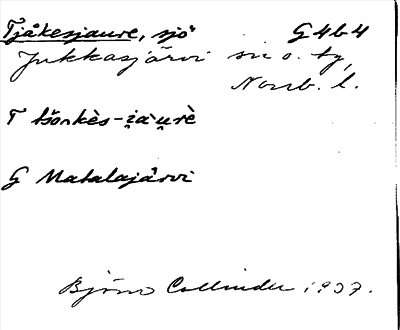 Tjåkesjaure, sjö G4b4
Jukkasjärvi sn o. tg,
Norrb. l.
T
G Matalajärvi
Björn Collinder 1937.